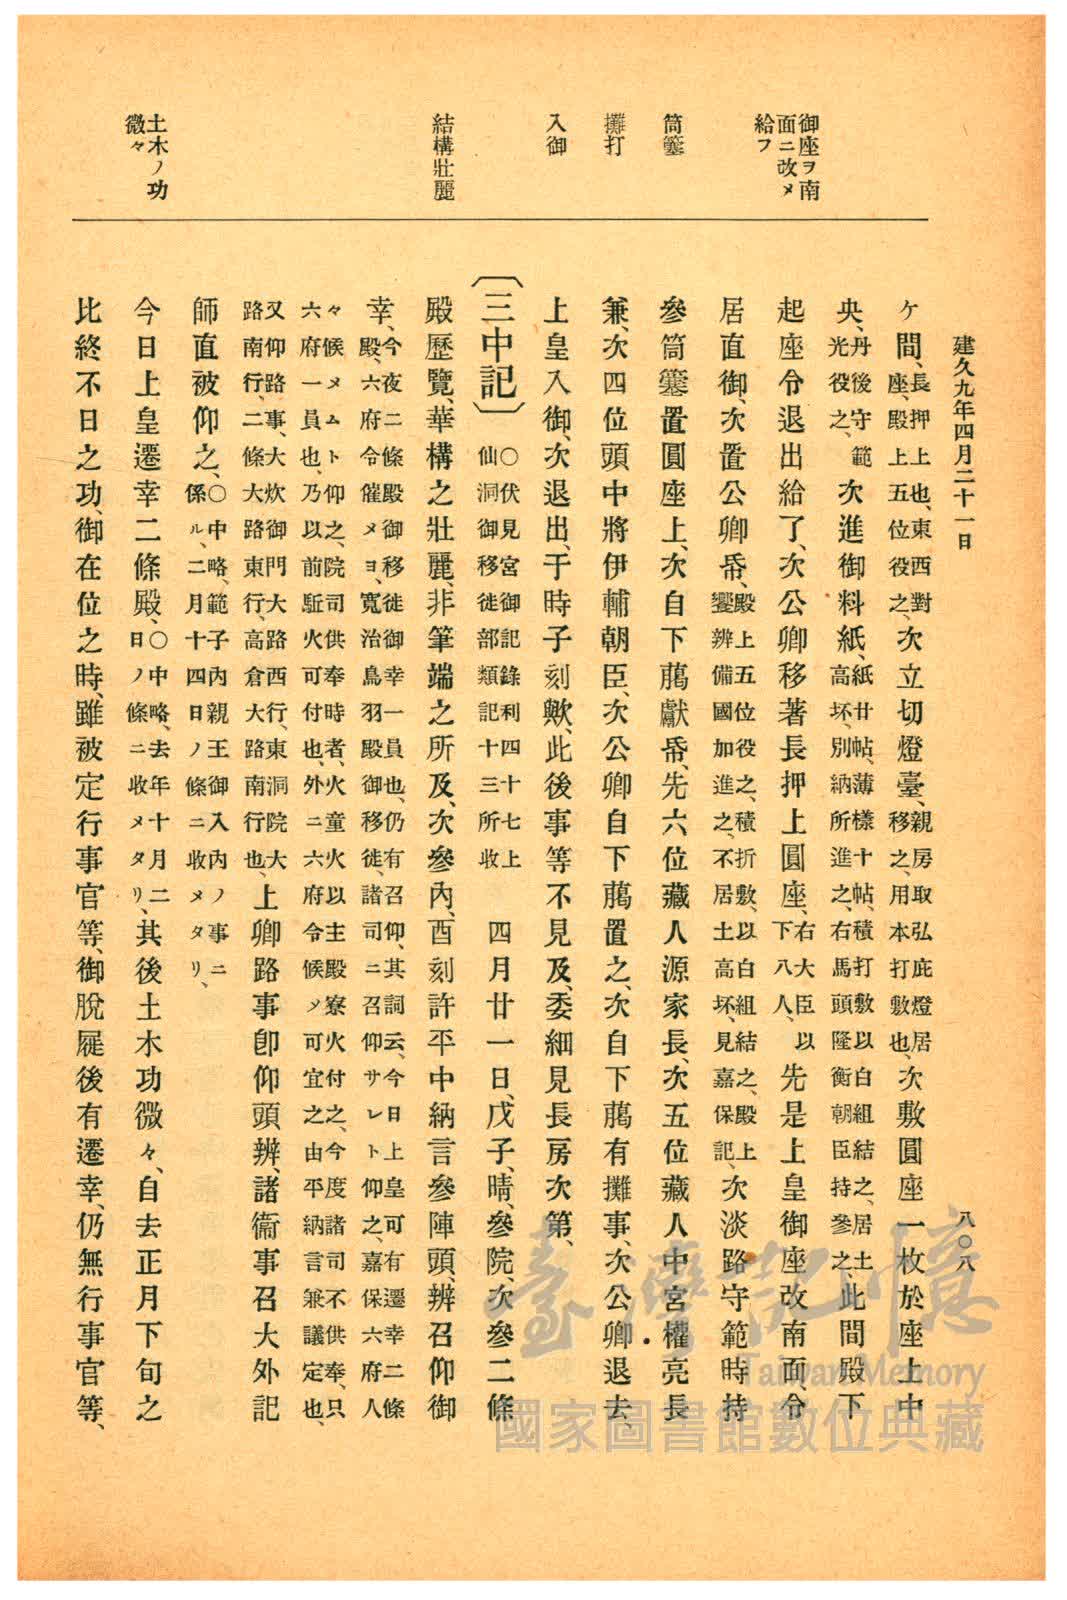 建久九年四月二十一日
八〇八
御座ヲ南
面ニ改メ
給フ
筒簺
攤打
入御
結構壯麗
土木ノ功
微々
ケ間、長押上也、東西對
座、殿上五位役之、次立切燈臺、親房取弘庇燈居
移之、用本打敷也、次敷圓座一枚於座上中
央、丹後守範
光役之、次進御料紙、紙廿帖、薄樣十帖、積打敷以白組結之、居土
高坏、別納所進之、右馬頭隆衡朝臣持參之、此間殿下
起座令退出給了、次公卿移著長押上圓座、右大臣以
下八人、先是上皇御座改南面、令
居直御、次置公卿帋、殿上五位役之、積折敷、以白組結之、殿上
饗辨備國加進之、不居土高坏、見嘉保記、次淡路守範時持
參筒簺置圓座上、次自下﨟獻帋、先六位藏人源家長、次五位藏人中宮權亮長
兼、次四位頭中將伊輔朝臣、次公卿自下﨟置之、次自下﨟有攤事、次公卿退去、
上皇入御、次退出、于時子刻歟、此後事等不見及、委細見長房次第、
〔三中記〕〇伏見宮御記錄利四十七上
仙洞御移徙部類記十三所收 四月廿一日、戊子、晴、參院、次參二條
殿歷覽、華構之壯麗、非筆端之所及、次參內、酉刻許平中納言參陣頭、辨召仰御
幸、今夜二條殿御移徙御幸一員也、仍有召仰、其詞云、今日上皇可有遷幸二條
殿、六府令催メヨ、寬治鳥羽殿御移徙、諸司ニ召仰サレト仰之、嘉保六府人
々候メムト仰之、院司供奉時者、火童火以主殿寮火付之、今度諸司不供奉、只
六府一員也、乃以前駈火可付也、外ニ六府令候メ可宜之由平納言兼議定也、
又仰路事、大炊御門大路西行、東洞院大
路南行、二條大路東行、高倉大路南行也、上卿路事卽仰頭辨、諸衞事召大外記
師直被仰之、〇中略、範子內親王御入內ノ事ニ
係ル、二月十四日ノ條ニ收メタリ、
今日上皇遷幸二條殿、〇中略、去年十月二
日ノ條ニ收メタリ、其後土木功微々、自去正月下旬之
比終不日之功、御在位之時、雖被定行事官等、御脫屣後有遷幸、仍無行事官等、
臺灣記憶
Taiwan Memory
國家圖書館數位典藏